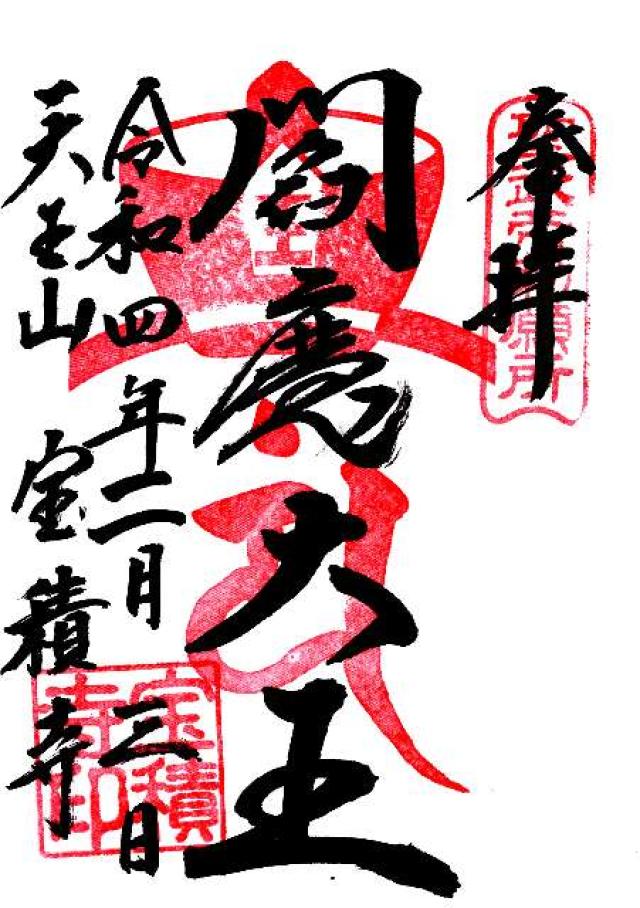 奉拝
願所
閻魔大王
王
令和四年二月三日
天王山 宝積寺
宝積寺印